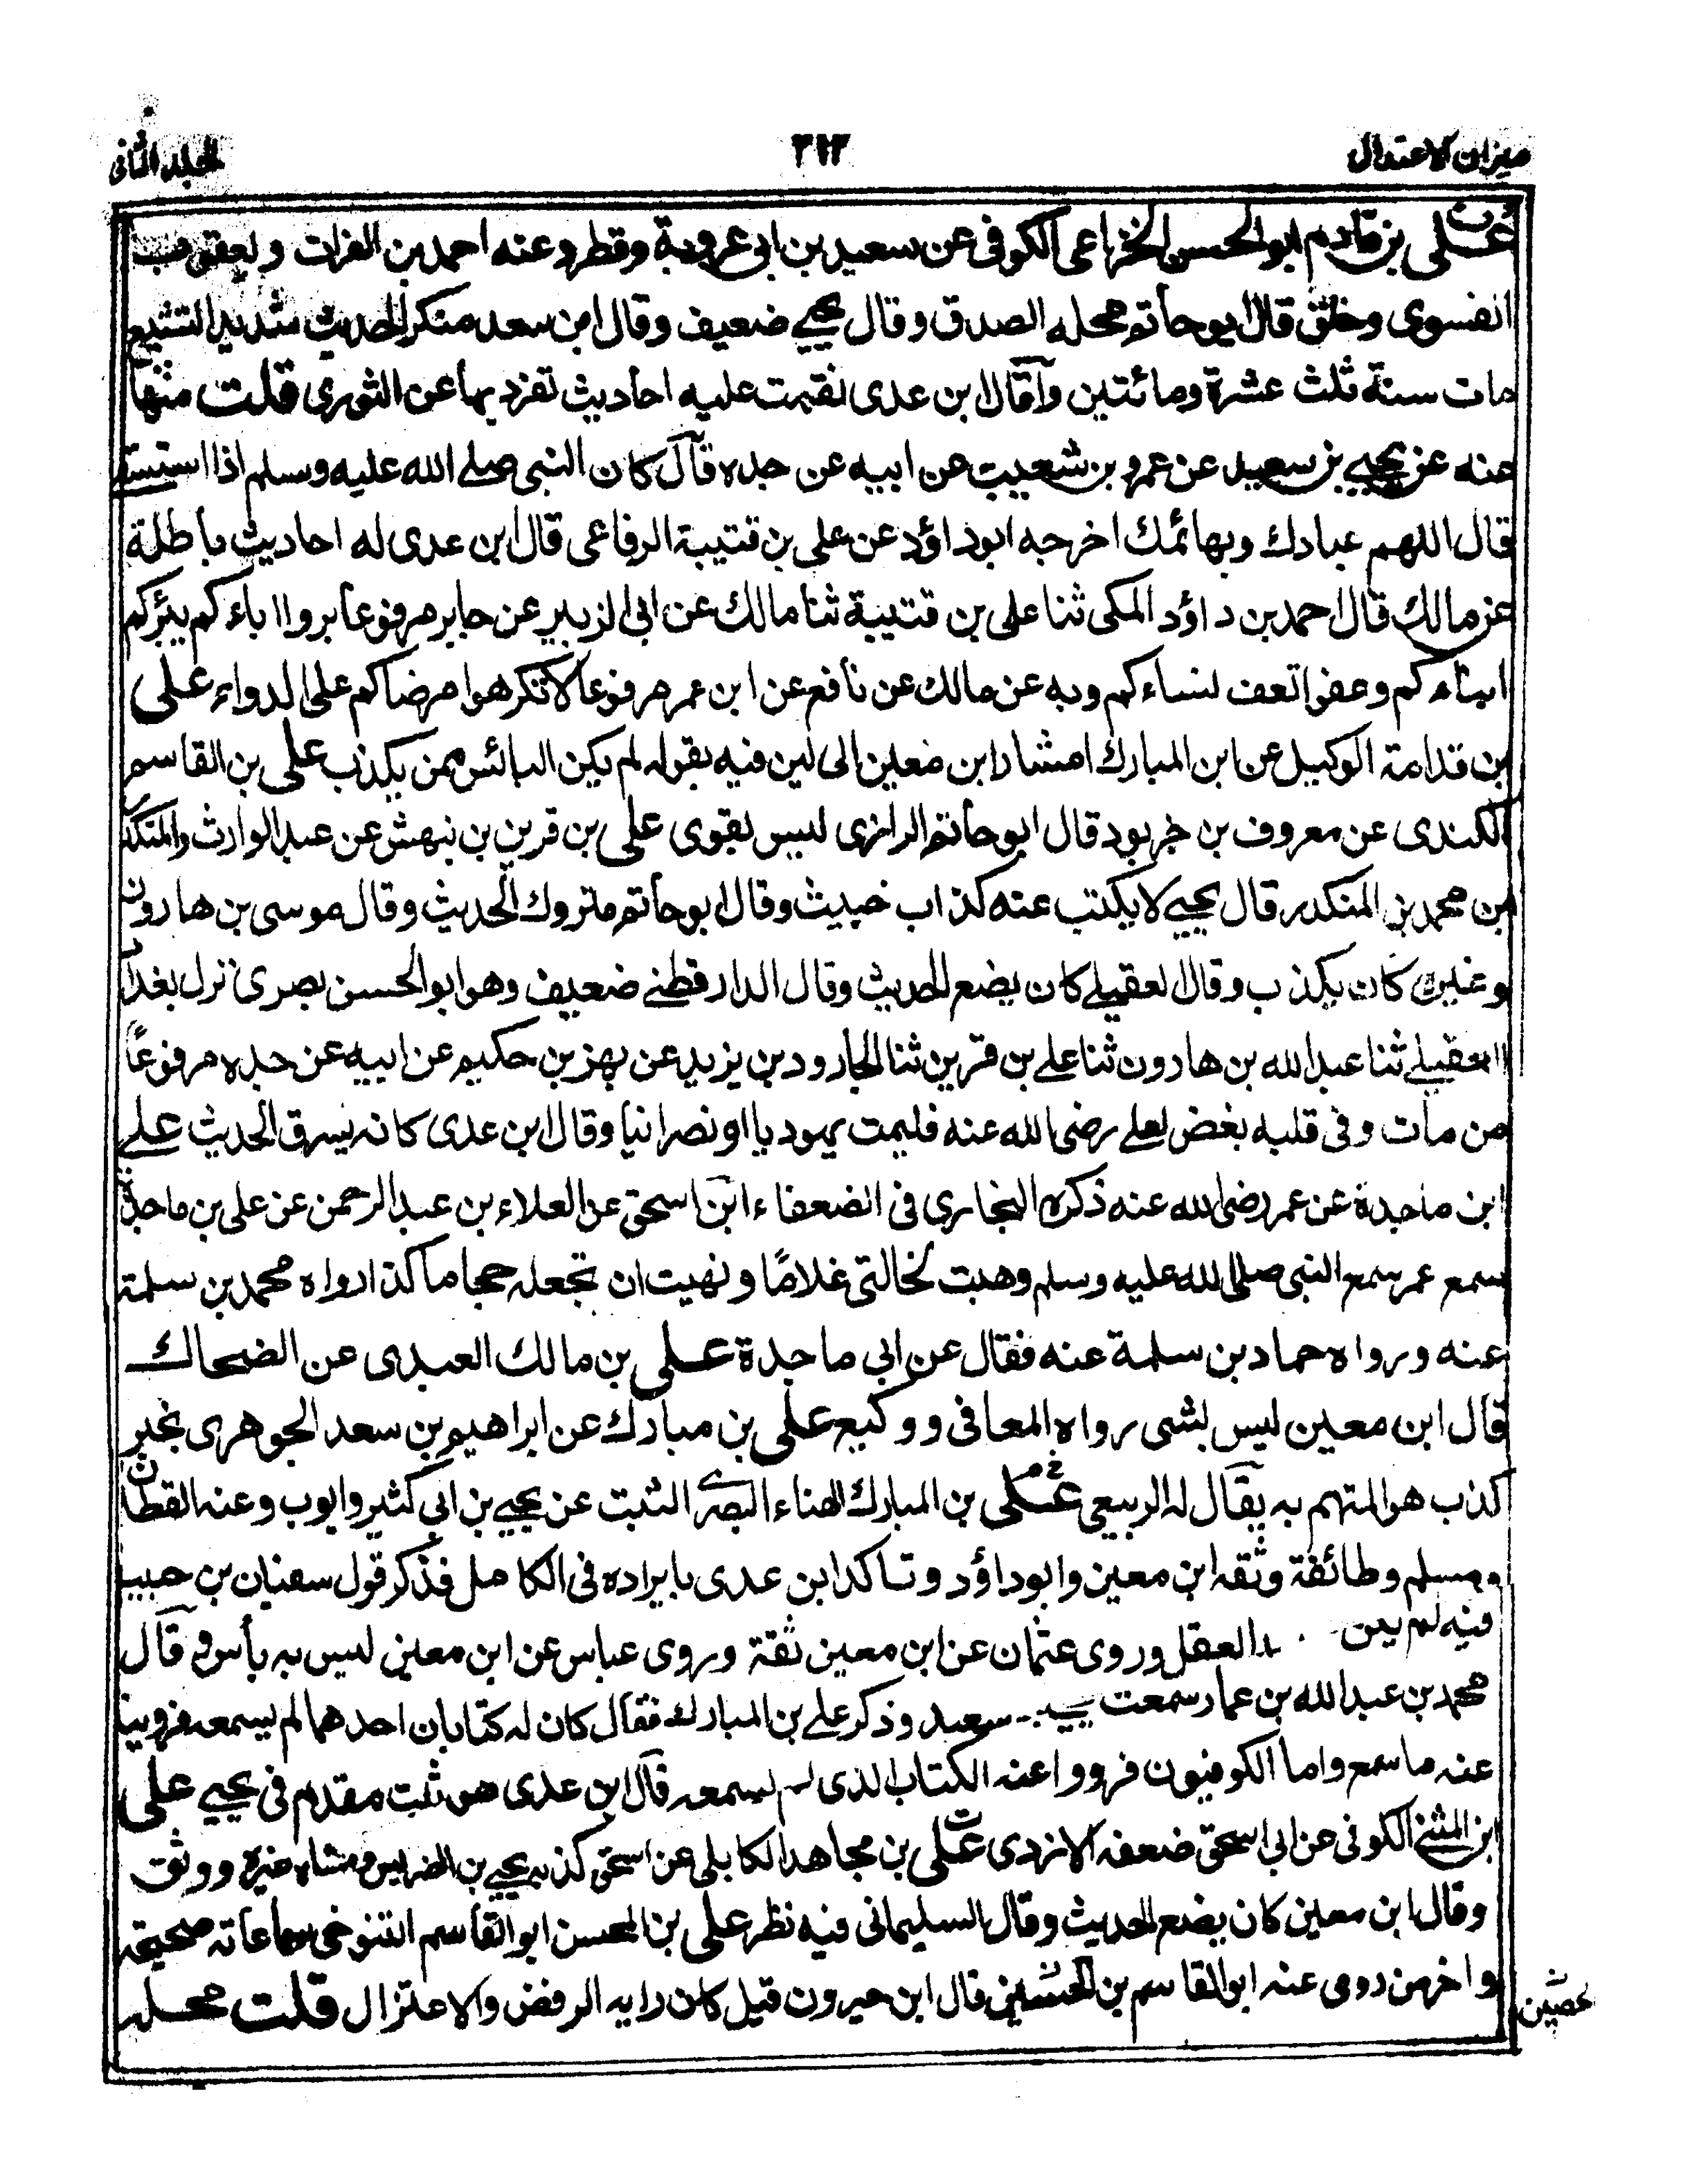 ميزان الاعتدال ٣١٣ المجلد الثانى
على بن قادم ابو الحسن الخزاعى الكوفى عن سعيد بن ابى عروبة وقطر وعنه احمد بن الفرات ويعقوب
الفسوى وخلق قال ابو حاتم محله الصدق وقال يحيى ضعيف وقال ابن سعد منكر الحديث شديد التشيع
مات سنة ثلث عشرة ومائتين وآقال ابن عدى نقمت عليه احاديث تفرد بها عن الثورى قلت منها
عنه عن يحيى بن سعيد عن عمرو بن شعيب عن ابيه عن جده قال كان النبى صلى الله عليه وسلم اذا استسقے
قال اللهم عبادك وبهائمك اخرجه ابو داؤد عن على بن قتيبة الرفاعى قال ابن عدى له احاديث باطلة
عن مالك قال احمد بن داؤد المكى ثنا على بن قتيبة ثنا مالك عن ابى الزبير عن جابر مرفوعا بروا اباءكم يبركم
ابناءكم وعفوا تعف نساءكم وبه عن مالك عن نافع عن ابن عمر مرفوعا لا تكرهوا مرضاكم على الدواء على
بن قدامة الوكيل عن ابن المبارك اشار ابن معين الى لين فيه بقوله لم يكن البائس ممن يكذب على بن القاسم
الكندى عن معروف بن خربوذ قال ابو حاتم الرازى ليس بقوى على بن قرين بن نبهش عن عبد الوارث والمنكدر
بن محمد بن المنكدر قال يحيى لا يكتب عنه كذاب خبيث وقال ابو حاتم متروك الحديث وقال موسى بن هارون
وغيره كان يكذب وقال العقيلے كان يضع الحديث وقال الدارقطنے ضعيف وهو ابو الحسن بصرى نزل بغداد
العقيلے ثنا عبد الله بن هارون ثنا علے بن قرين ثنا الجارود بن يزيد عن بهز بن حكيم عن ابيه عن جده مرفوعًا
من مات وفى قلبه بغض لعلے رضى الله عنه فليمت يهوديا او نصرانيا وقال ابن عدى كان يسرق الحديث علے
ابن ماجدة عن عمر رضى الله عنه ذكره البخارى فى الضعفاء ابن اسحق عن العلاء بن عبد الرحمن عن على بن ماجدة
سمع عمر سمع النبى صلى الله عليه وسلم وهبت لخالتى غلامًا ونهيت ان تجعله حجاما كذا رواه محمد بن سلمة
عنه ورواه حماد بن سلمة عنه فقال عن ابى ماجدة على بن مالك العبدى عن الضحاك
قال ابن معين ليس بشى رواه المعافى ووكيع على بن مبارك عن ابراهيم بن سعد الجوهرى بخبر
كذب هو المتهم به يقال له الربيعى على بن المبارك الهناء البصرى الثبت عن يحيى بن ابى كثير وايوب وعنه القطان
ومسلم وطائفة وثقه ابن معين وابو داؤد وتاكد ابن عدى بايراده فى الكامل فذكر قول سفيان بن حبيب
فيه لم يكن العقل وروى عثمان عن ابن معين ثقة وروى عباس عن ابن معين ليس به بأس و قال
محمد بن عبد الله بن عمار سمعت سعيد وذكر علے بن المبارك فقال كان له كتابان احدهما لم يسمعه فروينا
عنه ما سمع واما الكوفيون فرووا عنه الكتاب الذى لم يسمعه قال ابن عدى هو ثبت مقدم فى يحيى على
ابن المثنے الكوفى عن ابى اسحق ضعفه الازدى على بن مجاهد الكابلى عن اسحق كذبه يحيى بن الضريس ومشاه غيره ووثق
وقال ابن معين كان يضع الحديث وقال السليمانى فيه نظر على بن المحسن ابو القاسم التنوخى سماعاته صحيحة
واخر من روى عنه ابو القاسم بن الحسين قال ابن خيرون قيل كان رايه الرفض والاعتزال قلت محله
حصين